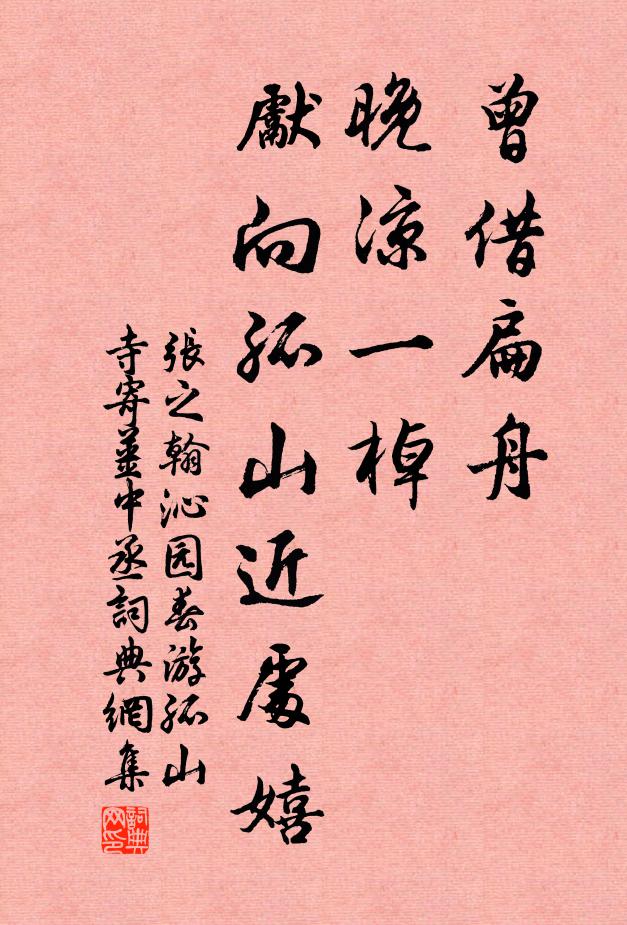 曾借扁舟
晚涼一棹
獻向孤山近處嬉
張之翰沁园春游孤山
寺寄薑中丞詞典網集
詞典
网印